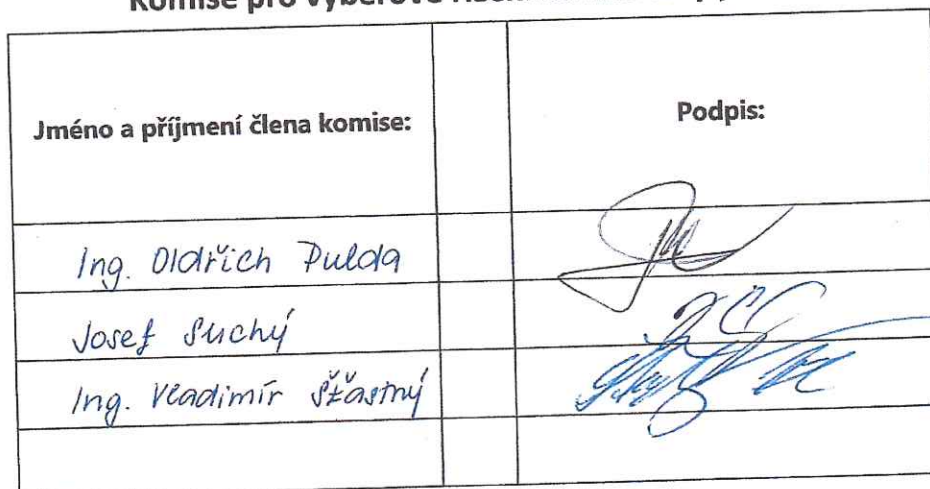 Komise pro výběrové
Jméno a příjmení člena komise:
Podpis:
Ing. Oldřich Pulda
Josef Suchý
Ing. Vladimír Šťastný